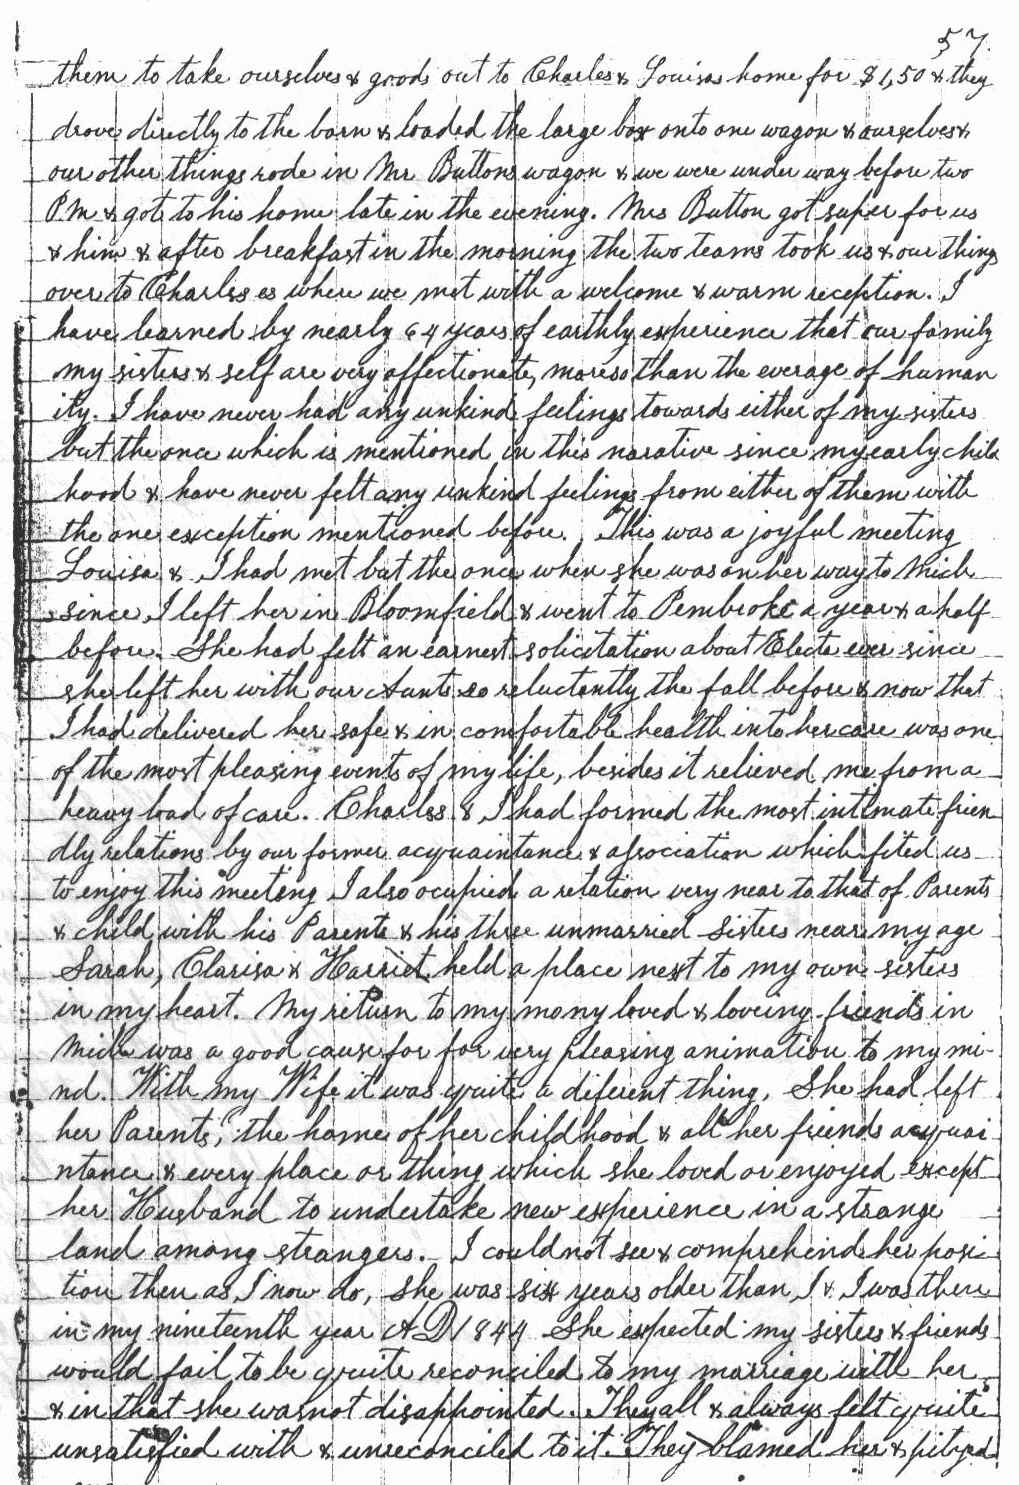 57.
them to take ourselves & goods out to Charles & Louisas home for $1,50 & they
drove directly to the barn & loaded the large box onto one wagon & ourselves &
our other things rode in Mr Buttons wagon & we were under way before two
P.M & got to his home late in the evening. Mrs Button got super for us
& him & after breakfast in the morning the two teams took us & our things
over to Charles es where we met with a welcome & warm reception. I
have learned by nearly 64 years of earthly experience that our family
my sisters & self are very affectionate, more so than the everage of human
ity. I have never had any unkind feelings towards either of my sisters
but the once which is mentioned in this narative since my early child
hood & have never felt any unkind feelings from either of them with
the one exception mentioned before. This was a joyful meeting
Louisa & I had met but the once when she was on her way to Mich
since I left her in Bloomfield & went to Pembroke a year & a half
before. She had felt an earnest solicitation about Electa ever since
she left her with our Aunts so reluctently the fall before & now that
I had delivered her safe & in comfortable health into her care was one
of the most pleasing events of my life, besides it relieved me from a
heavy load of care. Charles & I had formed the most intimate frien
dly relations by our former acquaintance & association which fited us
to enjoy this meeting I also ocupied a relation very near to that of Parents
& child with his Parents & his three unmarried sisters near my age
Sarah, Clarisa & Harriet held a place next to my own sisters
in my heart. My return to my mony loved & loveing friends in
Mich was a good cause for for very pleasing animation to my mi-
nd. With my Wife it was quite a diferent thing, She had left
her Parents, the home of her childhood & all her friends acquai
ntance & every place or thing which she loved or enjoyed except
her Husband to undertake new experience in a strange
land among strangers. I could not see & comprehend her posi
tion then as I now do, she was six years older than I & I was then
in my nineteenth year AD 1844 She expected my sisters & friends
would fail to be quite reconciled to my marriage with her
& in that she was not disappointed. They all & always felt quite
unsatisfied with & unreconciled to it. They blamed her & pityed